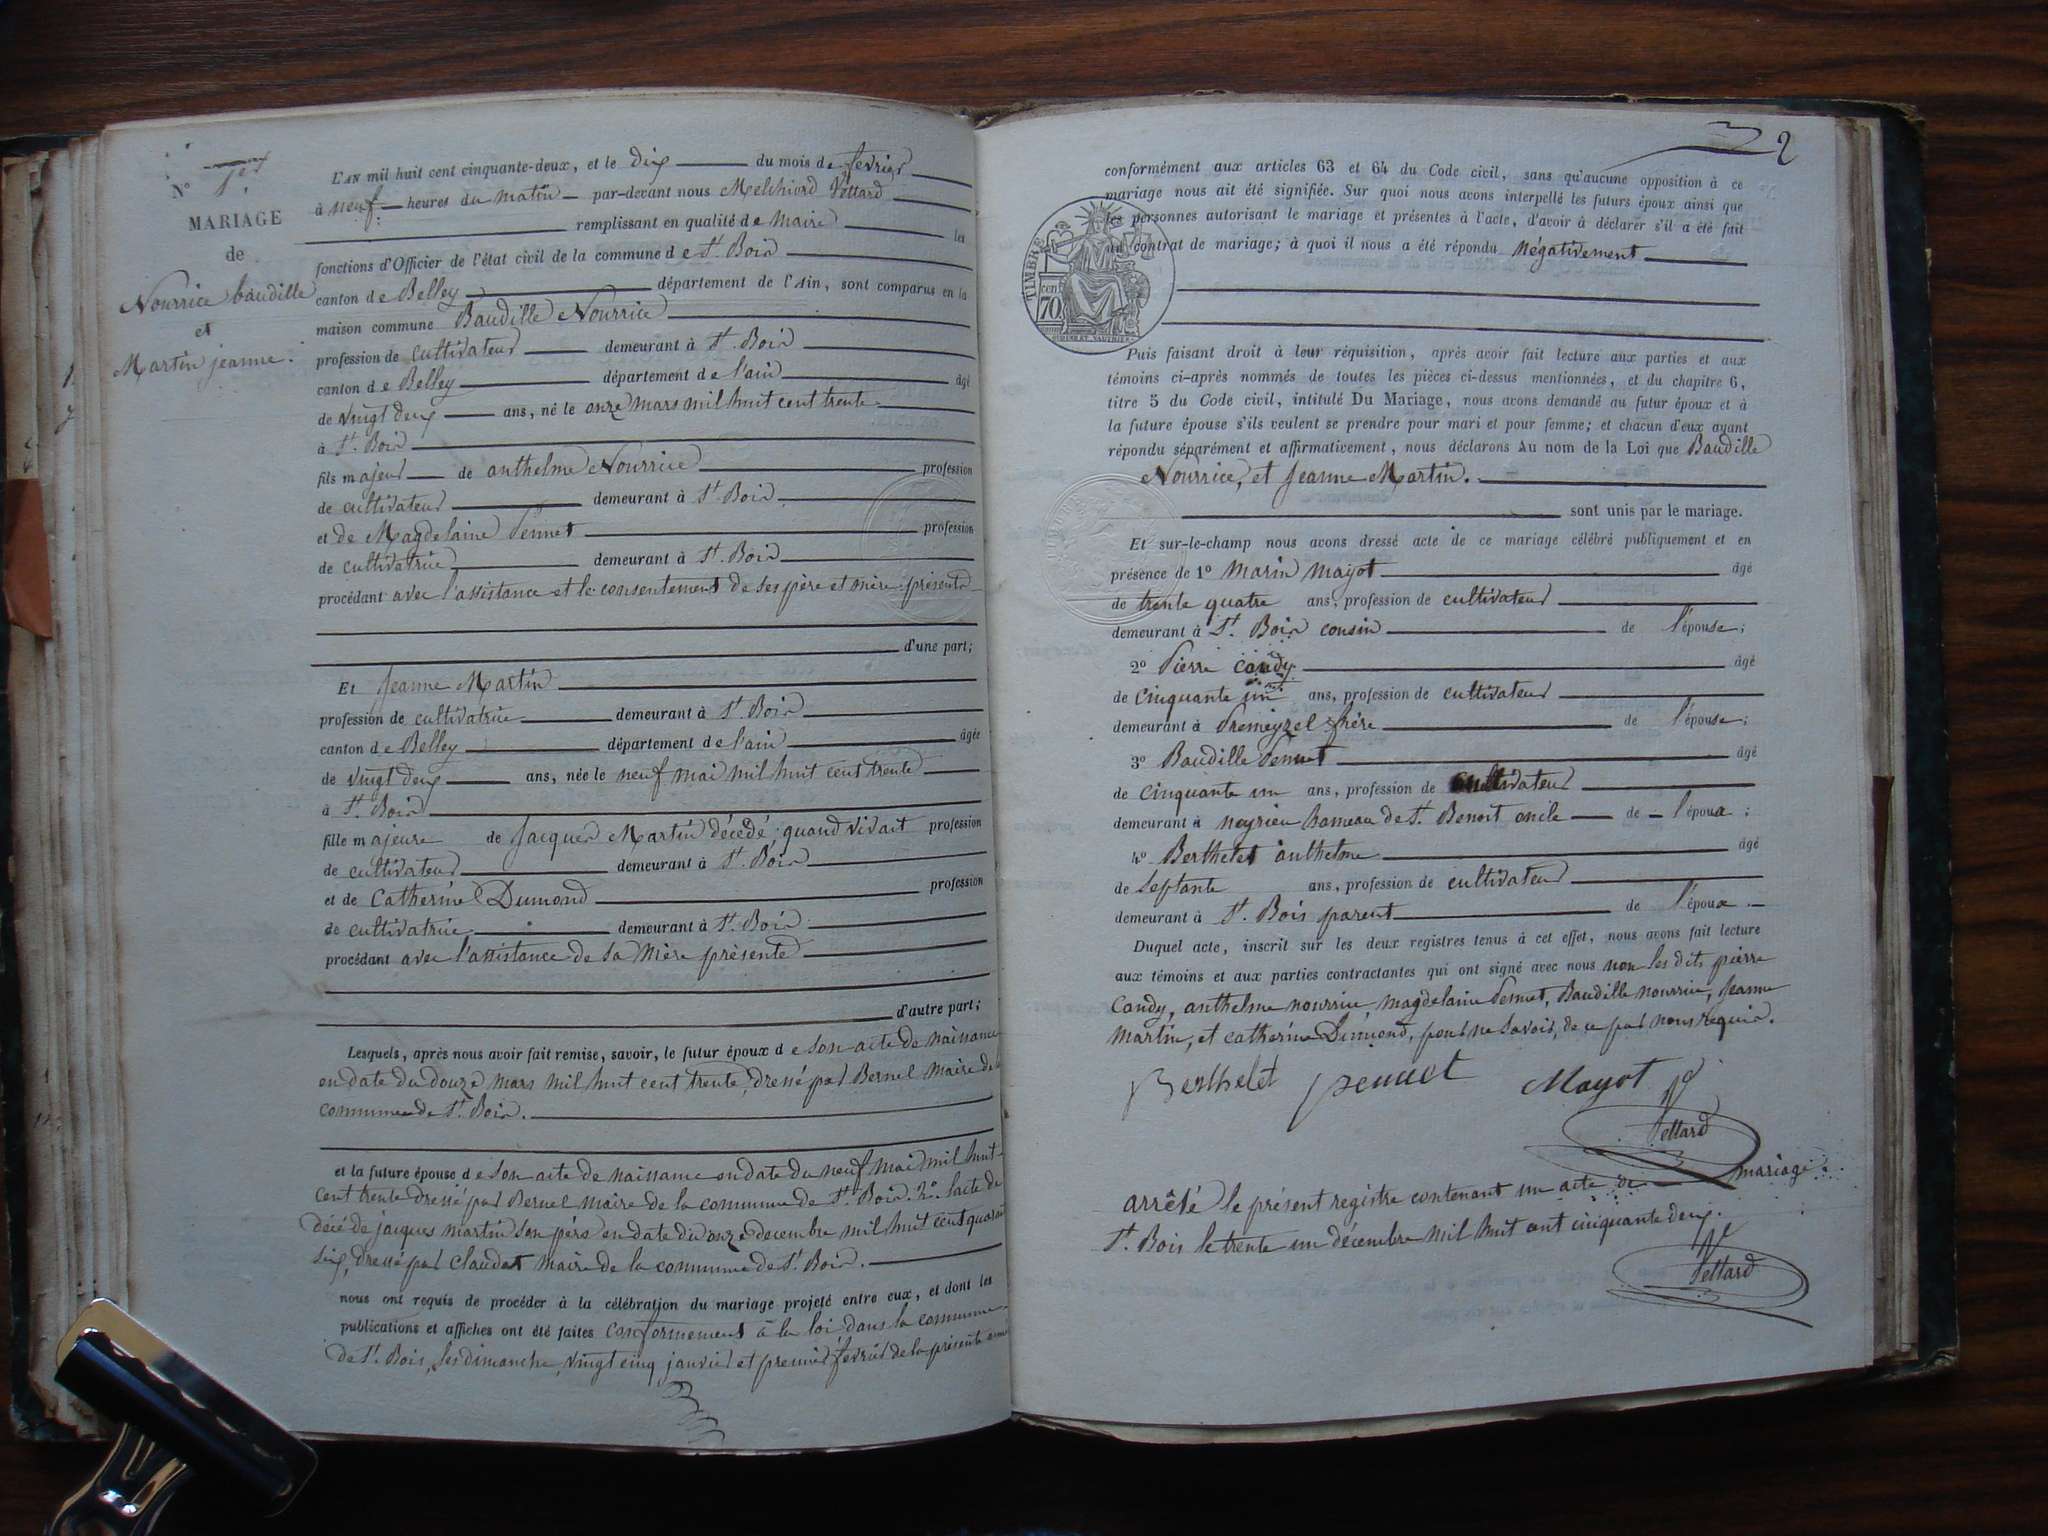 N° 1er
MARIAGE
de
Nourrice baudille
et
Martin jeanne.
L'AN mil huit cent cinquante-deux, et le dix du mois de fevrier
à neuf heures du matin par-devant nous Melchiord Pettard
remplissant en qualité de Maire les
fonctions d'Officier de l'état civil de la commune de St. Bois
canton de Belley département de l'Ain, sont comparus en la
maison commune Baudille Nourrice
profession de cultivateur demeurant à St. Bois
canton de Belley département de l'ain âgé
de vingt deux ans, né le onze mars mil huit cent trente
à St. Bois
fils majeur de anthelme Nourrice profession
de cultivateur demeurant à St. Bois
et de Magdelaine Pennet profession
de cultivatrice demeurant à St. Bois
procédant avec l'assistance et le consentement de ses père et mère présents
d'une part;
Et Jeanne Martin
profession de cultivatrice demeurant à St. Bois
canton de Belley département de l'ain âgée
de vingt deux ans, née le neuf mai mil huit cent trente
à St. Bois
fille majeure de Jacques Martin décedé quand vivait profession
de cultivateur demeurant à St. Bois
et de Catherine Dumond profession
de cultivatrice demeurant à St. Bois
procédant avec l'assistance de sa Mère présente
d'autre part;
Lesquels, après nous avoir fait remise, savoir, le futur époux de son acte de naissance
en date du douze mars mil huit cent trente, dressé par Bernel Maire de la
commune de St. Bois.
et la future épouse de son acte de naissance en date du neuf mai mil huit
cent trente dressé par Bernel maire de la commune de St. Bois. 2° lacte de
décé de jacques martin son père en date du onze decembre mil huit cent quarante
six, dressé par Claudet maire de la commune de St. Bois.
nous ont requis de procéder à la célébration du mariage projeté entre eux, et dont les
publications et affiches ont été faites conformement à la loi dans la commune
de St. Bois, les dimanche vingt cinq janvier et premier février de la présente année
2
conformément aux articles 63 et 64 du Code civil, sans qu'aucune opposition à ce
mariage nous ait été signifiée. Sur quoi nous avons interpellé les futurs époux ainsi que
les personnes autorisant le mariage et présentes à l'acte, d'avoir à déclarer s'il a été fait
un contrat de mariage; à quoi il nous a été répondu négativement
TIMBRE
cen
70
Puis faisant droit à leur réquisition, après avoir fait lecture aux parties et aux
témoins ci-après nommés de toutes les pièces ci-dessus mentionnées, et du chapitre 6,
titre 5 du Code civil, intitulé Du Mariage, nous avons demandé au futur époux et à
la future épouse s'ils veulent se prendre pour mari et pour femme; et chacun d'eux ayant
répondu séparément et affirmativement, nous déclarons Au nom de la Loi que Baudille
Nourrice, et Jeanne Martin.
sont unis par le mariage.
Et sur-le-champ nous avons dressé acte de ce mariage célébré publiquement et en
présence de 1° Marin Mayot âgé
de trente quatre ans, profession de cultivateur
demeurant à St. Bois cousin de l'épouse;
2° Pierre Candy âgé
de cinquante un ans, profession de cultivateur
demeurant à frère de l'épouse;
3° Baudille Pennet âgé
de cinquante un ans, profession de cultivateur
demeurant à neyrieu hameau de St. Benoit oncle de l'époux;
4° Berthelet anthelme âgé
de Septante ans, profession de cultivateur
demeurant à St. Bois parent de l'époux
Duquel acte, inscrit sur les deux registres tenus à cet effet, nous avons fait lecture
aux témoins et aux parties contractantes qui ont signé avec nous non les dits pierre
Candy, anthelme nourrice magdelaine Pennet, Baudille nourrice, Jeanne
Martin, et catherine Dumond, pour ne savoir, de ce par nous requis.
Berthelet pennet Mayot
Pettard
arrêté le présent registre contenant un acte de mariage
St. Bois le trente un décembre mil huit cent cinquante deux.
Pettard